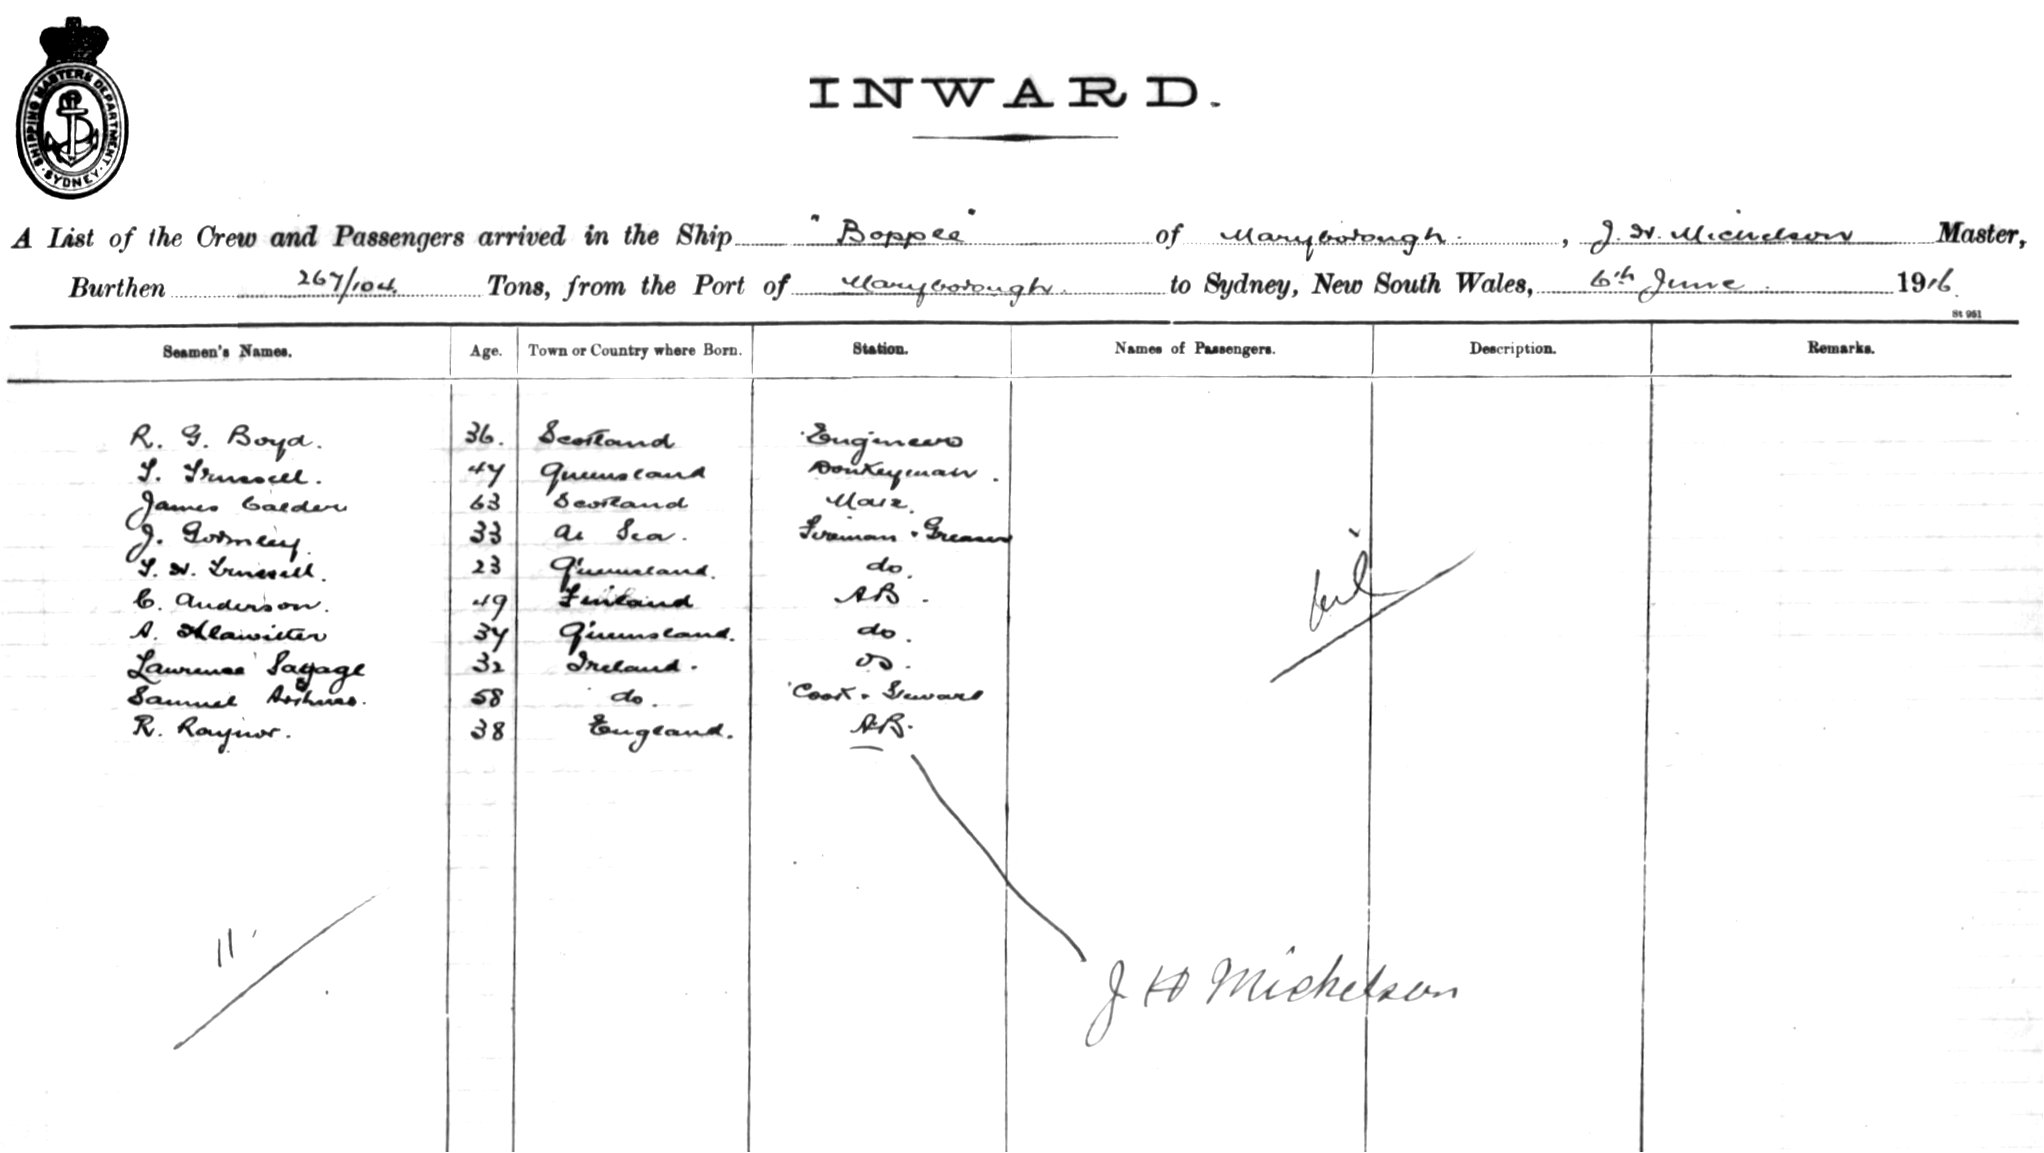 SHIPPING MASTERS DEPARTMENT
SYDNEY
INWARD.
A List of the Crew and Passengers arrived in the Ship "Boppee" of Maryborough, J. H. Michelson Master,
Burthen 267/104 Tons, from the Port of Maryborough to Sydney, New South Wales, 6th June 1916.
St 951
Seamen's Names. Age. Town or Country where Born. Station. Names of Passengers. Description. Remarks.
R. G. Boyd. 36. Scotland Engineer
T. Trussell. 47 Queensland Donkeyman.
James Calder 63 Scotland Mate.
J. Gormley. 33 At Sea. Fireman & Greaser
T. H. Trussell. 23 Queensland. do.
C. Anderson. 49 Finland AB.
A. 37 Queensland. do.
Lawrence Savage 32 Ireland. OS.
Samuel 58 do. Cook & Steward
R. Raynor. 38 England. AB.
nil
11
J H Michelson